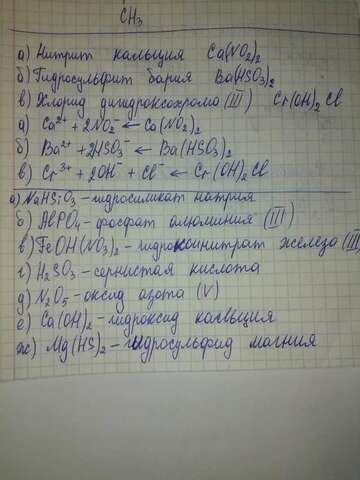 CH₃
а) Нитрит кальция Ca(NO₂)₂
б) Гидросульфит бария Ba(HSO₃)₂
в) Хлорид дигидроксохрома (III) Cr(OH)₂Cl
а) Ca²⁺ + 2NO₂⁻ ← Ca(NO₂)₂
б) Ba²⁺ + 2HSO₃⁻ ← Ba(HSO₃)₂
в) Cr³⁺ + 2OH⁻ + Cl⁻ ← Cr(OH)₂Cl
а) NaHSiO₃ - гидросиликат натрия
б) AlPO₄ - фосфат алюминия (III)
в) FeOH(NO₃)₂ - гидроксонитрат железа (III)
г) H₂SO₃ - сернистая кислота
д) N₂O₅ - оксид азота (V)
е) Ca(OH)₂ - гидроксид кальция
ж) Mg(HS)₂ - гидросульфид магния